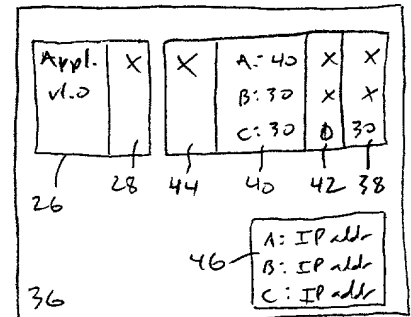 Appl. X X A: 40 X X
v1.0 B: 30 X X
C: 30 0 30
26 28 44 40 42 38
46 A: IP addr
B: IP addr
C: IP addr
36